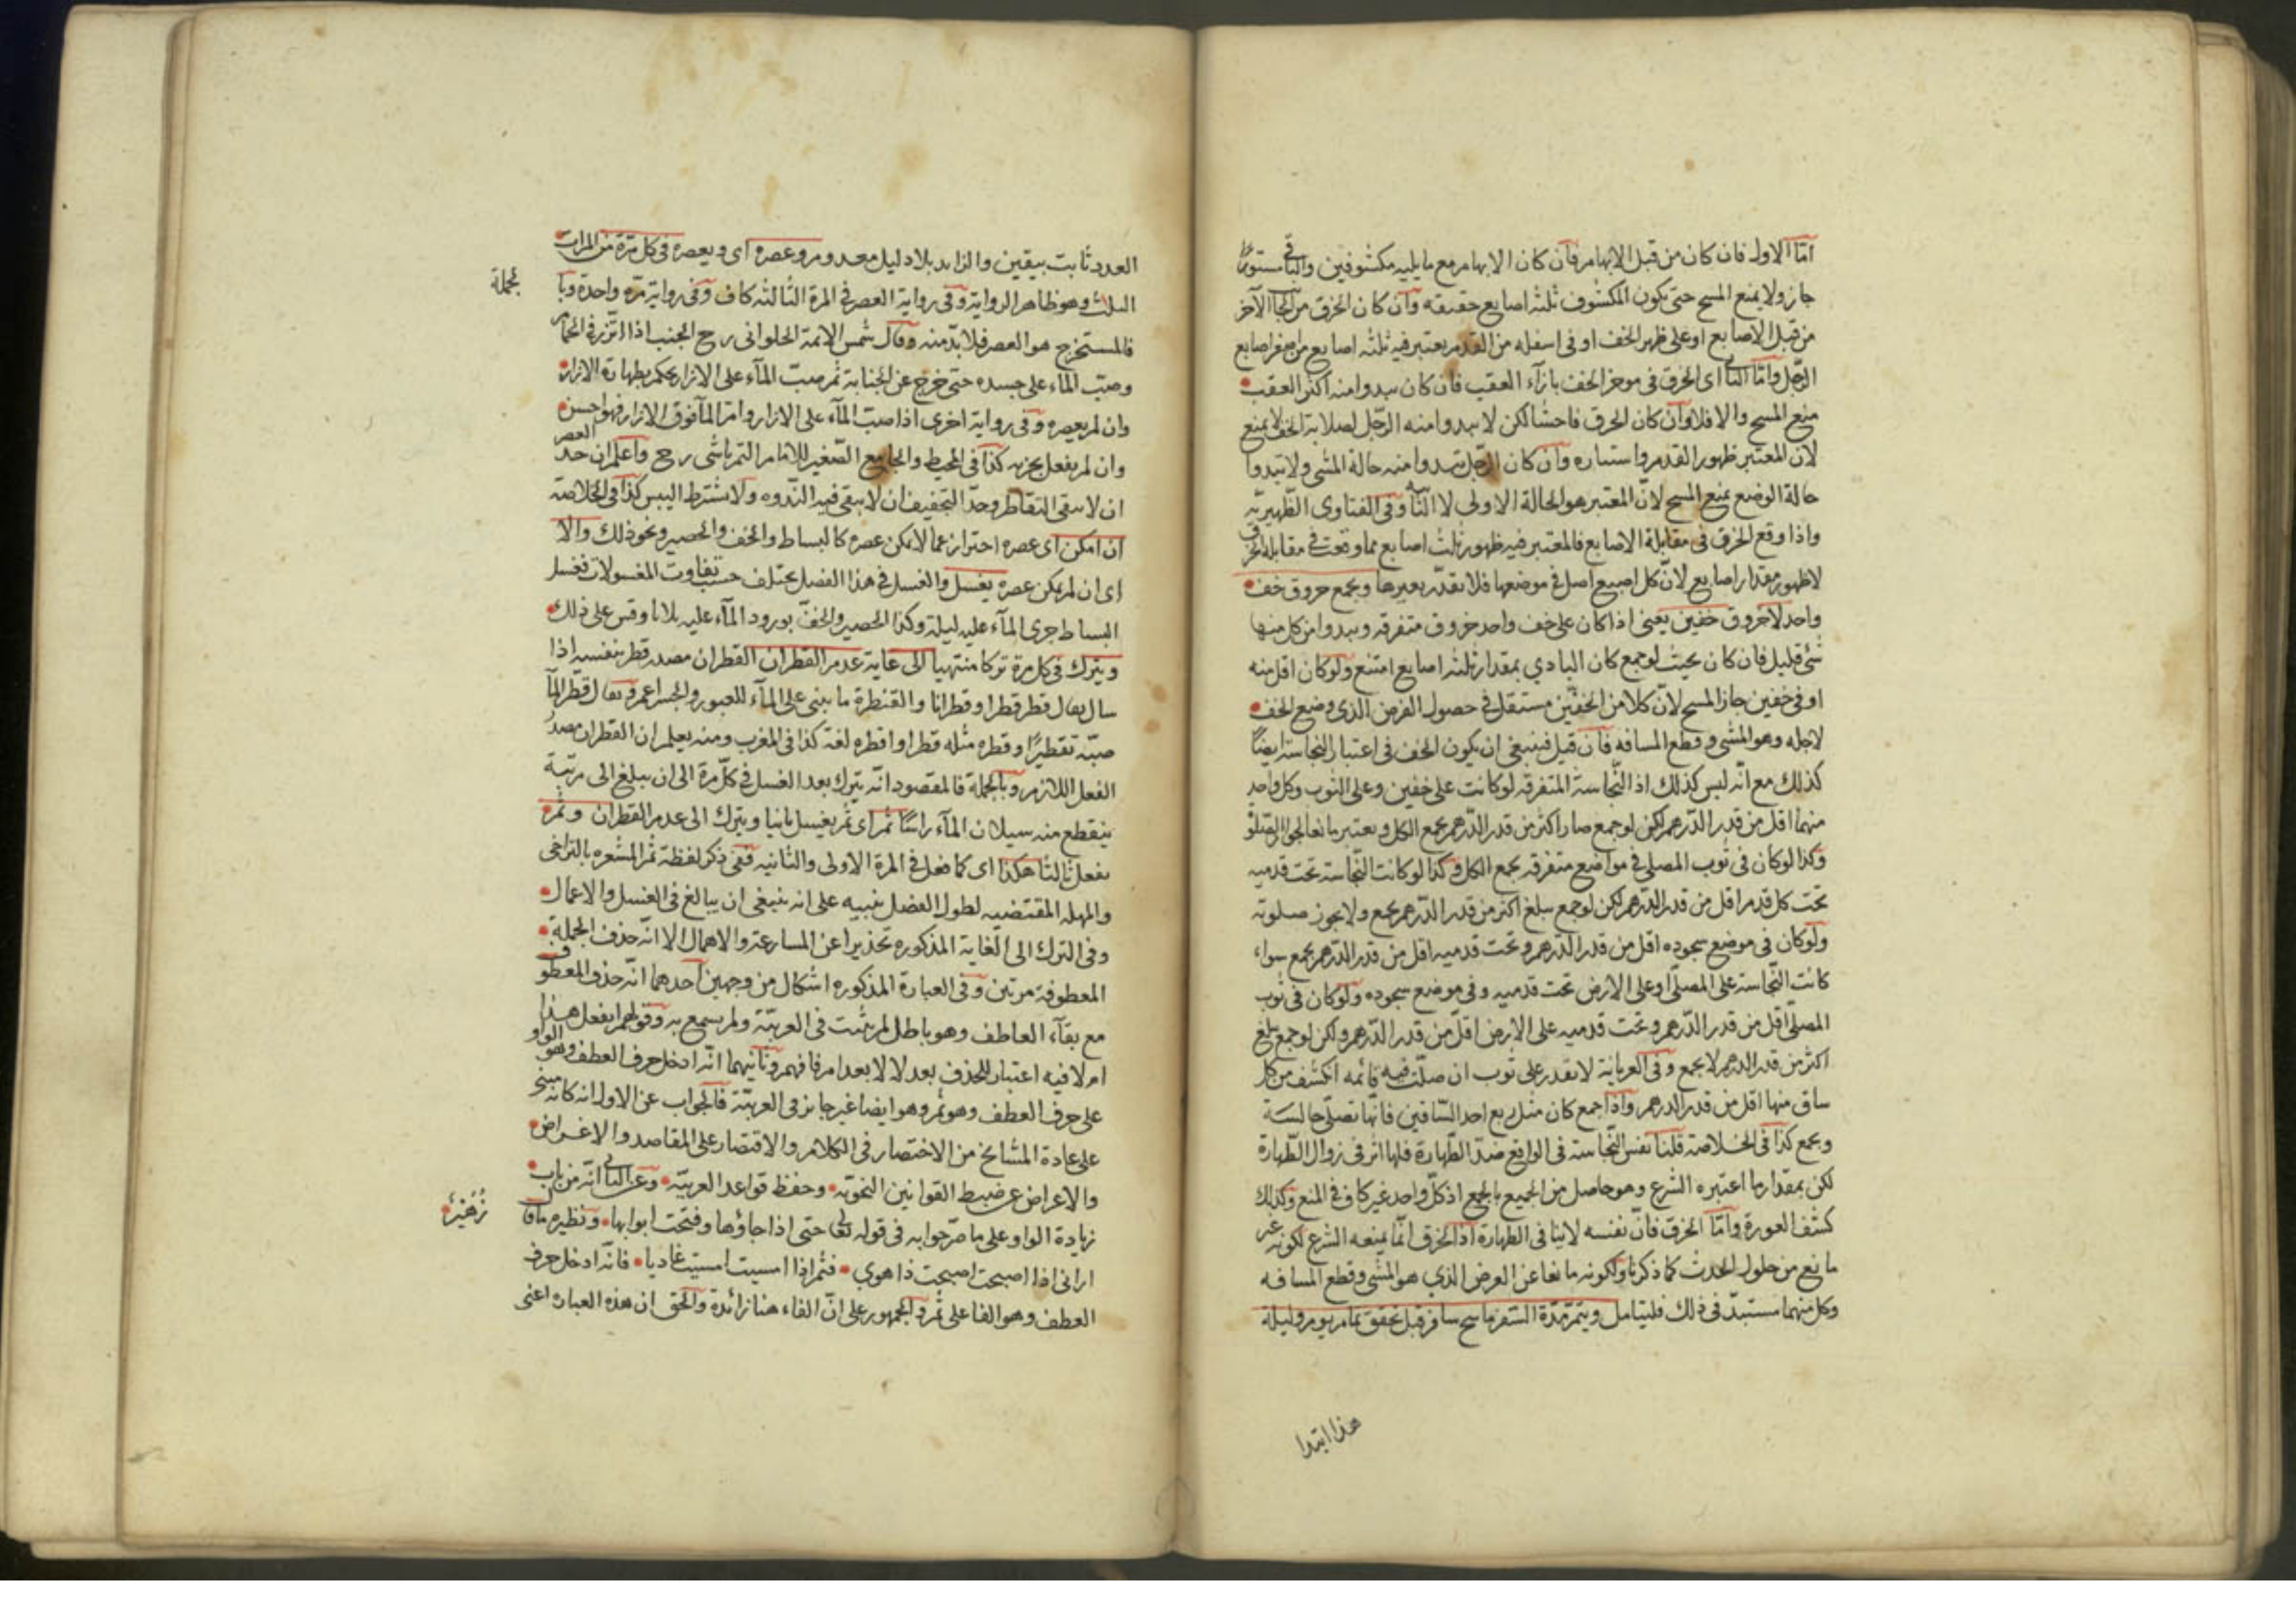 اما الاول فان كان من قبل الابهام فان كان الابهام مع ما يليه مكشوفين والباقى مستورا
جاز ولا يمنع المسح حتى يكون المكشوف ثلثه اصابع حقيقه وان كان الخرق من الجا الآخر
من قبل الاصابع او على ظهر الخف او فى اسفله من القدم يعتبر فيه ثلثه اصابع من اصغر اصابع
الرجل واما الثانى اى الخرق فى موخر الخف بازآء العقب فان كان يبدوا منه اكثر العقب
منع المسح والا فلا وان كان الخرق فاحشا لكن لا يبدوا منه الرجل لصلابة الخف لا يمنع
لان المعتبر ظهور القدم واستتاره وان كان الرجل يبدوا منه حالة المشى ولا تبدوا
حالة الوضع يمنع المسح لان المعتبر هو الحالة الاولى لا الثانيه وفى الفتاوى الظهيريه
واذا وقع الخرق فى مقابلة الاصابع فالمعتبر فيه ظهور ثلث اصابع مما وقعت فى مقابلة الخرق
لا ظهور مقدار اصابع لان كل اصبع اصل فى موضعها فلا تقدر بغيرها ويجمع خروق خف
واحد لا خروق خفين يعنى اذا كان على خف واحد خروق متفرقه ويبدوا من كل منها
شئ قليل فان كان بحيث لو جمع كان البادي بمقدار ثلثه اصابع امتنع ولو كان اقل منه
او فى خفين جاز المسح لان كلا من الخفين مستقل فى حصول الغرض الذى وضع الخف
لاجله وهو المشى وقطع المسافه فان قيل فينبغى ان يكون الخف فى اعتبار النجاسة ايضا
كذلك مع انه ليس كذلك اذ النجاسة المتفرقه لو كانت على خفين وعلى الثوب وكل واحد
منهما اقل من قدر الدرهم لكن لو جمع صار اكثر من قدر الدرهم يجمع الكل ويعتبر مانعا لجواز الصلوة
وكذا لو كان فى ثوب المصلى فى مواضع متفرقه يجمع الكل وكذا لو كانت النجاسة تحت قدميه
تحت كل قدم اقل من قدر الدرهم لكن لو جمع يبلغ اكثر من قدر الدرهم يجمع ولا يجوز صلوته
ولو كان فى موضع سجوده اقل من قدر الدرهم وتحت قدميه اقل من قدر الدرهم يجمع سواء
كانت النجاسة على المصلى او على الارض تحت قدميه وفى موضع سجوده ولو كان فى ثوب
المصلى اقل من قدر الدرهم وتحت قدميه على الارض اقل من قدر الدرهم ولكن لو جمع يبلغ
اكثر من قدر الدرهم لا يجمع وفى العريانة لا تقدر على ثوب ان صلت فيه قائمه انكشف من كل
ساق منها اقل من قدر الدرهم واذا جمع كان مثل ربع احد الساقين فانها تصلى جالسة
ويجمع كذا فى الخلاصة قلنا نفس النجاسة فى الواقع ضد الطهارة فلها اثر فى زوال الطهارة
لكن بمقدار ما اعتبره الشرع وهو حاصل من الجميع بالجمع اذ كل واحد غير كاف فى المنع وكذلك
كشف العورة واما الخرق فان نفسه لا ينافى الطهارة اذ الخرق انما يمنعه الشرع لكونه غير
مانع من حلول الحدث كما ذكرنا ولكونه مانعا عن الغرض الذي هو المشى وقطع المسافه
وكل منهما مستبد فى ذلك فليتامل ويتم مدة السفر ماسح سافر قبل تحقق تمام يوم وليلة
هذا ابتدا
العدد ثابت بيقين والزايد بلا دليل معدوم وعصره اى ويعصره فى كل مرة من المرات
بجملة
الثلث وهو ظاهر الرواية وفى رواية العصر فى المرة الثالثه كاف وفى رواية مره واحدة وبا
فالمستخرج هو العصر فلا بد منه وقال شمس الائمة الحلوانى رح الجنب اذا اتزر فى الحمام
وصب الماء على جسده حتى خرج عن الجنابة ثم صب المآء على الازار يحكم بطهارة الازار
وان لم يعصره وفى رواية اخرى اذا صب المآء على الازار وامر المآ فوق الازار فهو احسن
وان لم يفعل يجزيه كذا فى المحيط والجامع الصغير للامام التمرتاشى رح واعلم ان حد العصر
ان لا يبقى التقاطر وحد التجفيف ان لا يبقى فيه الندوه ولا يشترط اليبس كذا فى الخلاصة
ان امكن اى عصره احتراز عما لا يمكن عصره كالبساط والخف والحصير ونحو ذلك والا
اى ان لم يمكن عصره يغسل والغسل فى هذا الفصل يختلف حسب تفاوت المغسولات فغسل
البساط جرى المآء عليه ليلة وكذا الحصير والخف بورود المآء عليه ثلاثا وقس على ذلك
ويترك فى كل مرة تركا منتهيا الى غاية عدم القطران القطران مصدر قطر بنفسه اذا
سال يقال قطر قطرا وقطرانا والقنطرة ما يبنى على المآء للعبور والجسر اعم ويقال قطر المآ
صبه تقطيرا وقطره مثله قطرا واقطره لغة كذا فى المغرب ومنه يعلم ان القطران مصدر
الفعل اللازم وبالجملة فالمقصود انه يترك بعد الغسل فى كل مرة الى ان يبلغ الى مرتبة
ينقطع منه سيلان المآء راسا ثم اى ثم يغسل ثانيا ويترك الى عدم القطران وثم
يفعل ثالثا هكذا اى كما فعل فى المرة الاولى والثانيه ففى ذكر لفظة ثم المشعره بالتراخى
والمهله المقتضيه لطول الفصل تنبيه على انه ينبغى ان يبالغ فى الغسل والاعمال
وفى الترك الى الغاية المذكوره تحذيرا عن المسارعة والاهمال الا انه حذف الجملة
المعطوفة مرتين وفى العبارة المذكوره اشكال من وجهين احدهما انه حذف المعطوف
مع بقآء العاطف وهو باطل لم يثبت فى العربية ولم يسمع به وقولهم ايفعل هذا
ام لا فيه اعتبار للحذف بعد لا لا بعد ام فافهم وثانيهما انه ادخل حرف العطف وهو الواو
على حرف العطف وهو ثم وهو ايضا غير جايز فى العربية فالجواب عن الاول انه كانه مبنى
على عادة المشايخ من الاختصار فى الكلام والاقتصار على المقاصد والاغراض
والاعراض عن ضبط القوانين النحوية وحفظ قواعد العربية وعن الثانى انه من باب
زيادة الواو على ما مر جوابه فى قوله تعالى حتى اذا جاؤها وفتحت ابوابها ونظيره ما قال
زُهَيْر
ارانى اذا اصبحت اصبحت ذا هوي فثم اذا امسيت امسيت غاديا فانه ادخل حرف
العطف وهو الفا على ثم والجمهور على ان الفاء هنا زائدة والحق ان هذه العباره اعنى